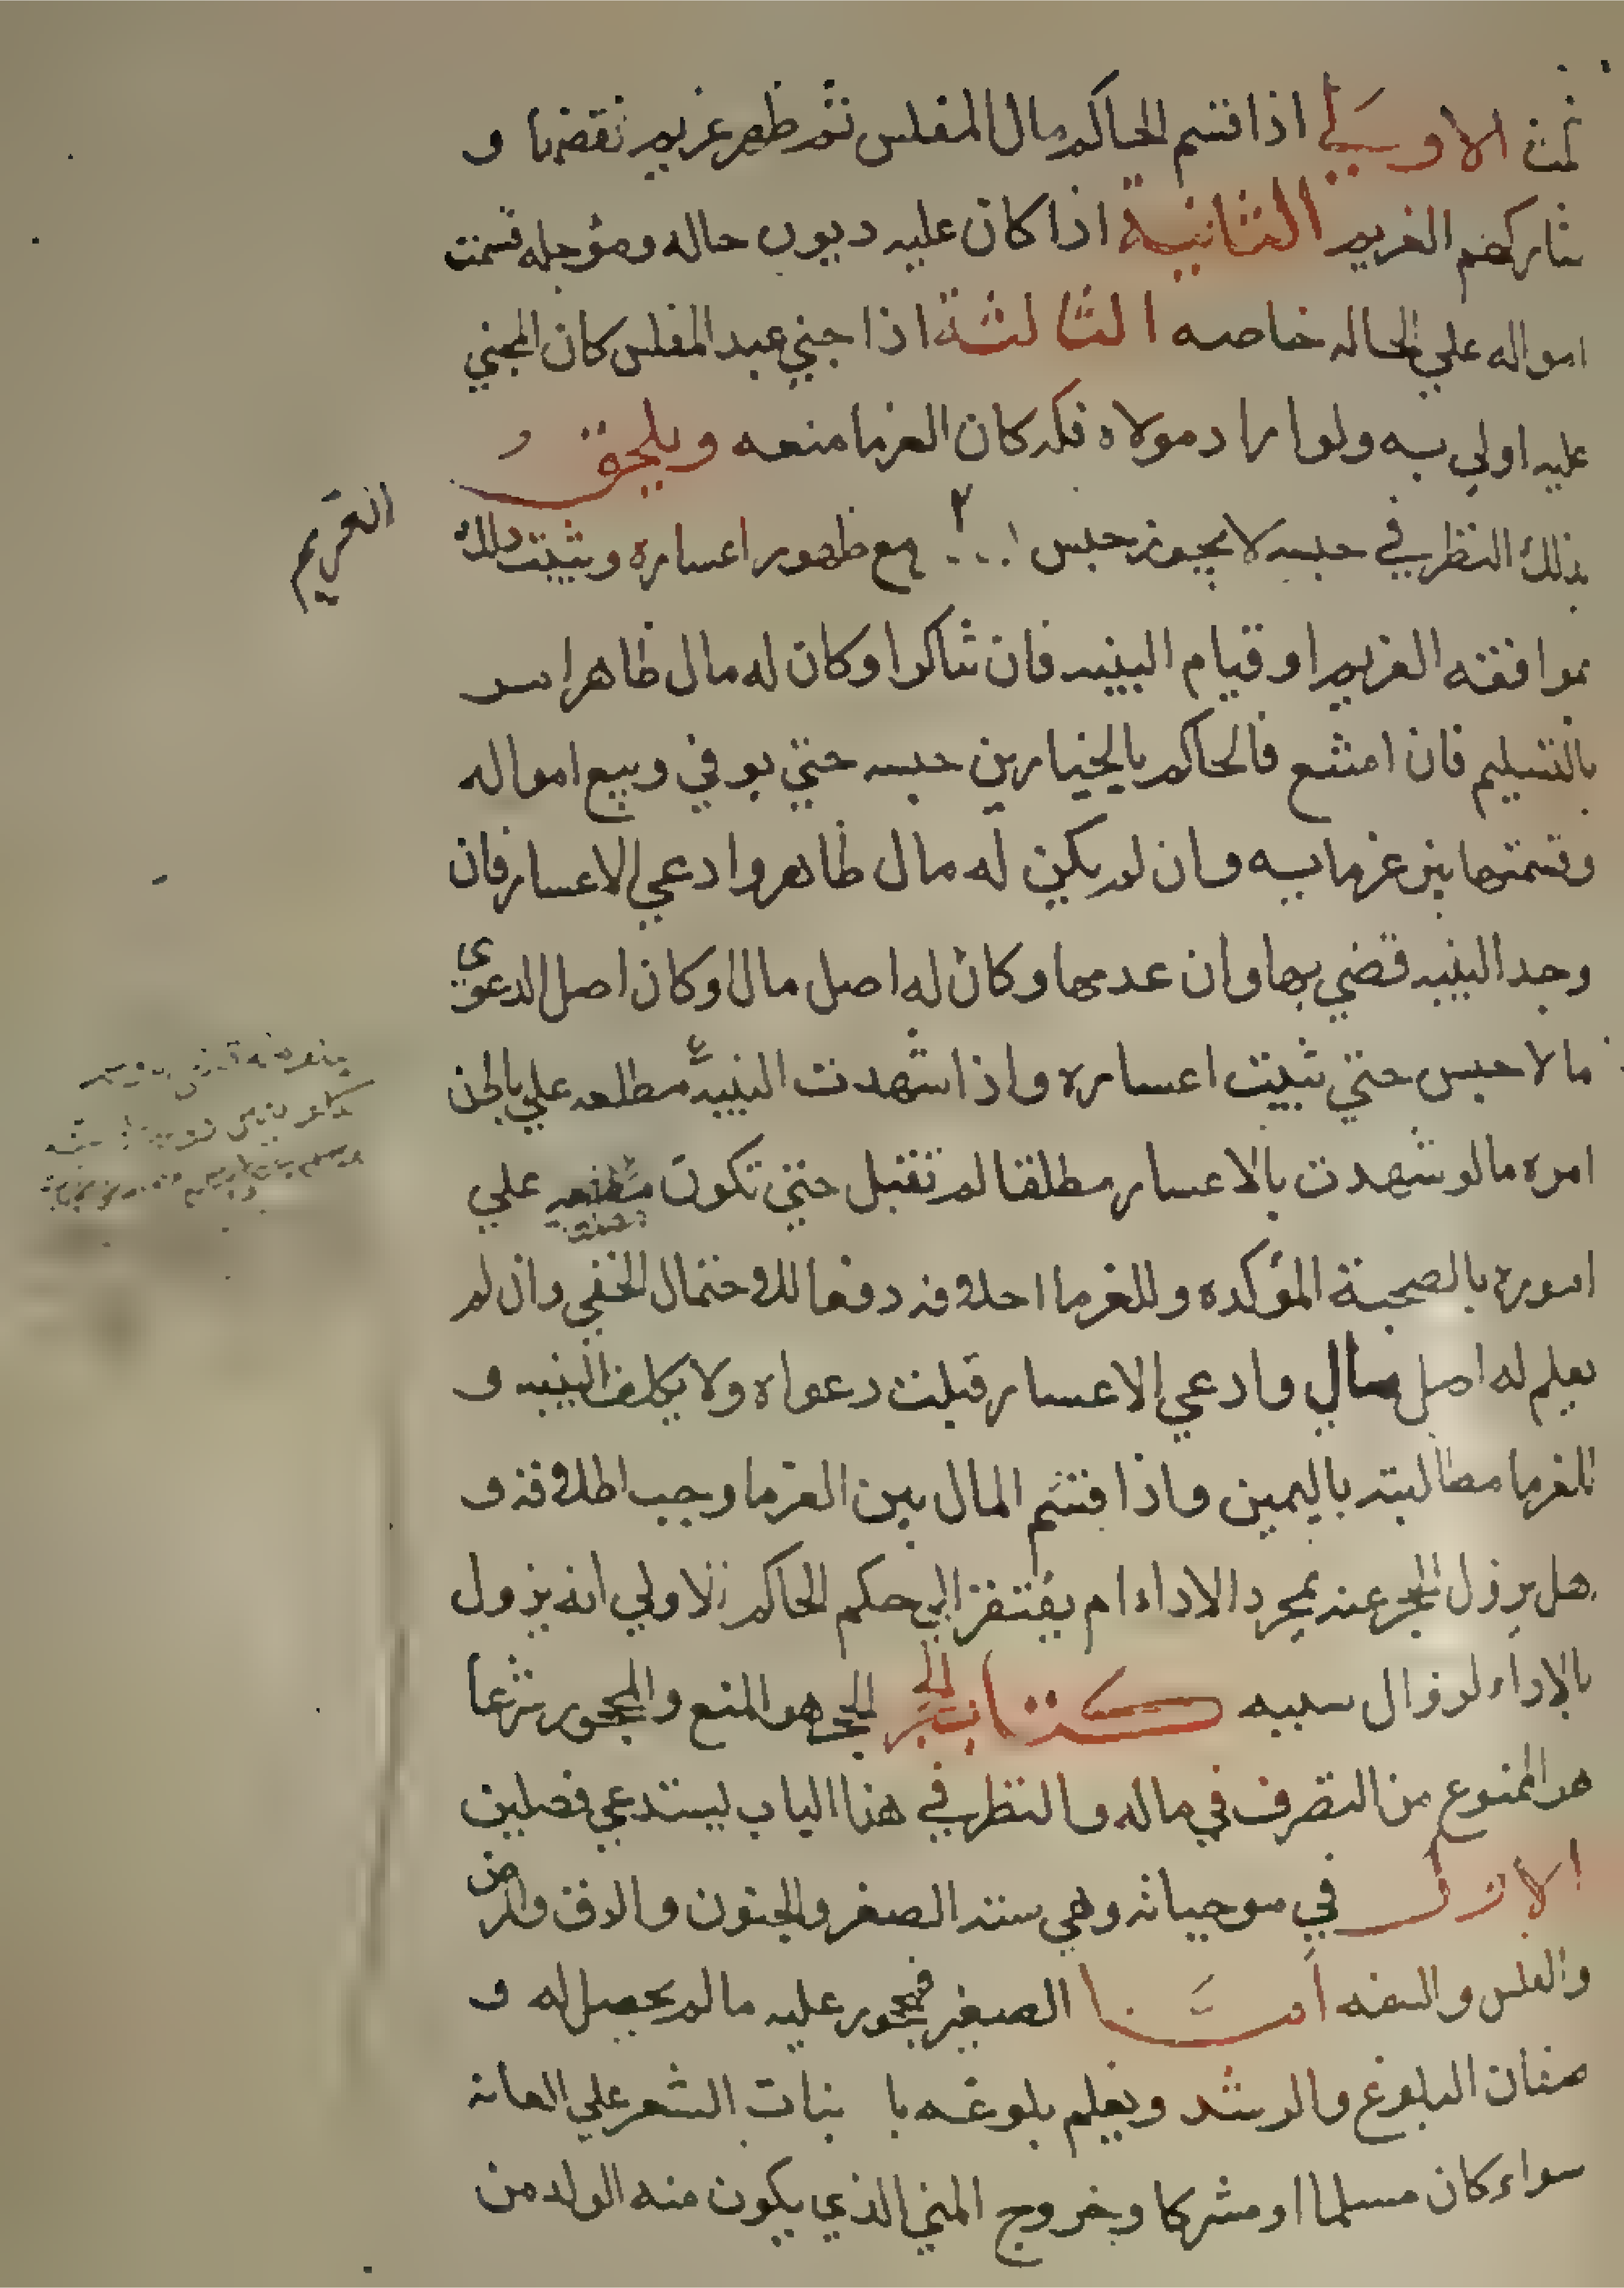 ثمن الاولى اذا قسم الحاكم مال المفلس ثم ظهر غريم نقضها و
شاركهم الغريم الثانية اذا كان عليه ديون حاله ومؤجله قسمت
امواله علي الحاله خاصه الثالثة اذا جني عبد المفلس كان المجني
عليه اولي به ولو اراد مولاه فكه كان الغرما منعه ويلحق
بذلك النظر في حبسه لا يجوز حبس مع ظهور اعساره ويثبت ذلك
الغريم
بموافقه الغريم او قيام البينه فان تناكرا وكان له مال ظاهر امر
بالتسليم فان امتنع فالحاكم بالخيار بين حبسه حتي يوفي وبيع امواله
وقسمتها بين غرمايه وان لم يكن له مال ظاهر وادعي الاعسار فان
وجد البينه قضي بها وان عدمها وكان له اصل مال او كان اصل الدعوي
مالا حبس حتي يثبت اعساره واذا شهدت البينه مطلعه علي باطن
امره ما لو شهدت بالاعسار مطلقا لم تقبل حتي تكون علي
اموره بالصحبة المؤكده وللغرما احلافه دفعا للاحتمال الخفي وان لم
يعلم له اصل مال وادعي الاعسار قبلت دعواه ولا يكلف البينه و
للغرما مطالبته باليمين واذا قسم المال بين الغرما وجب اطلاقه و
هل يزول الحجر عنه بمجرد الاداء ام يفتقر الي حكم الحاكم الاولي انه يزول
بالاداء لزوال سببه كتاب الحجر الحجر هو المنع والمحجور شرعا
هو الممنوع من التصرف في ماله والنظر في هذا الباب يستدعي فصلين
الاول في موجباته وهي ستة الصغر والجنون والرق والمرض
والفلس والسفه اما الصغير فمحجور عليه ما لم يحصل له و
صفان البلوغ والرشد ويعلم بلوغه با نبات الشعر علي العانه
سواء كان مسلما او مشركا وخروج المني الذي يكون منه الولد من